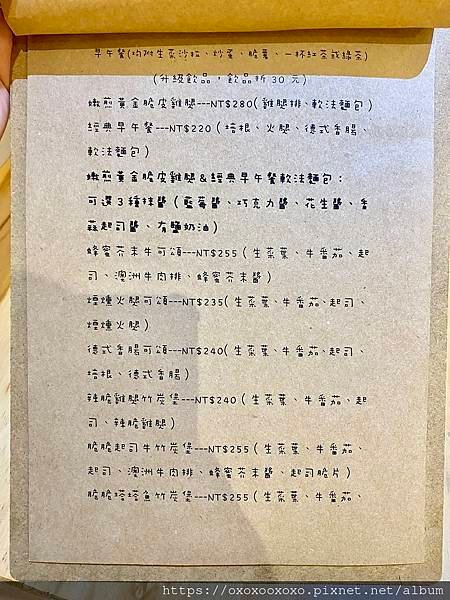 早午餐(均附生菜沙拉、炒蛋、脆薯、一杯紅茶或綠茶)
(升級飲品，飲品折30元)
嫩煎黃金脆皮雞腿---NT$280(雞腿排、軟法麵包)
經典早午餐---NT$220(培根、火腿、德式香腸、
軟法麵包)
嫩煎黃金脆皮雞腿&經典早午餐軟法麵包：
可選3種抹醬(藍莓醬、巧克力醬、花生醬、香
蒜起司醬、有鹽奶油)
蜂蜜芥末牛可頌---NT$255(生菜葉、牛番茄、起
司、澳洲牛肉排、蜂蜜芥末醬)
煙燻火腿可頌---NT$235(生菜葉、牛番茄、起司、
煙燻火腿)
德式香腸可頌---NT$240(生菜葉、牛番茄、起司、
培根、德式香腸)
辣脆雞腿竹炭堡---NT$240(生菜葉、牛番茄、起
司、辣脆雞腿)
脆脆起司牛竹炭堡---NT$255(生菜葉、牛番茄、
起司、澳洲牛肉排、蜂蜜芥末醬、起司脆片)
脆脆塔塔魚竹炭堡---NT$255(生菜葉、牛番茄、
https://oxoxooxoxo.pixnet.net/album